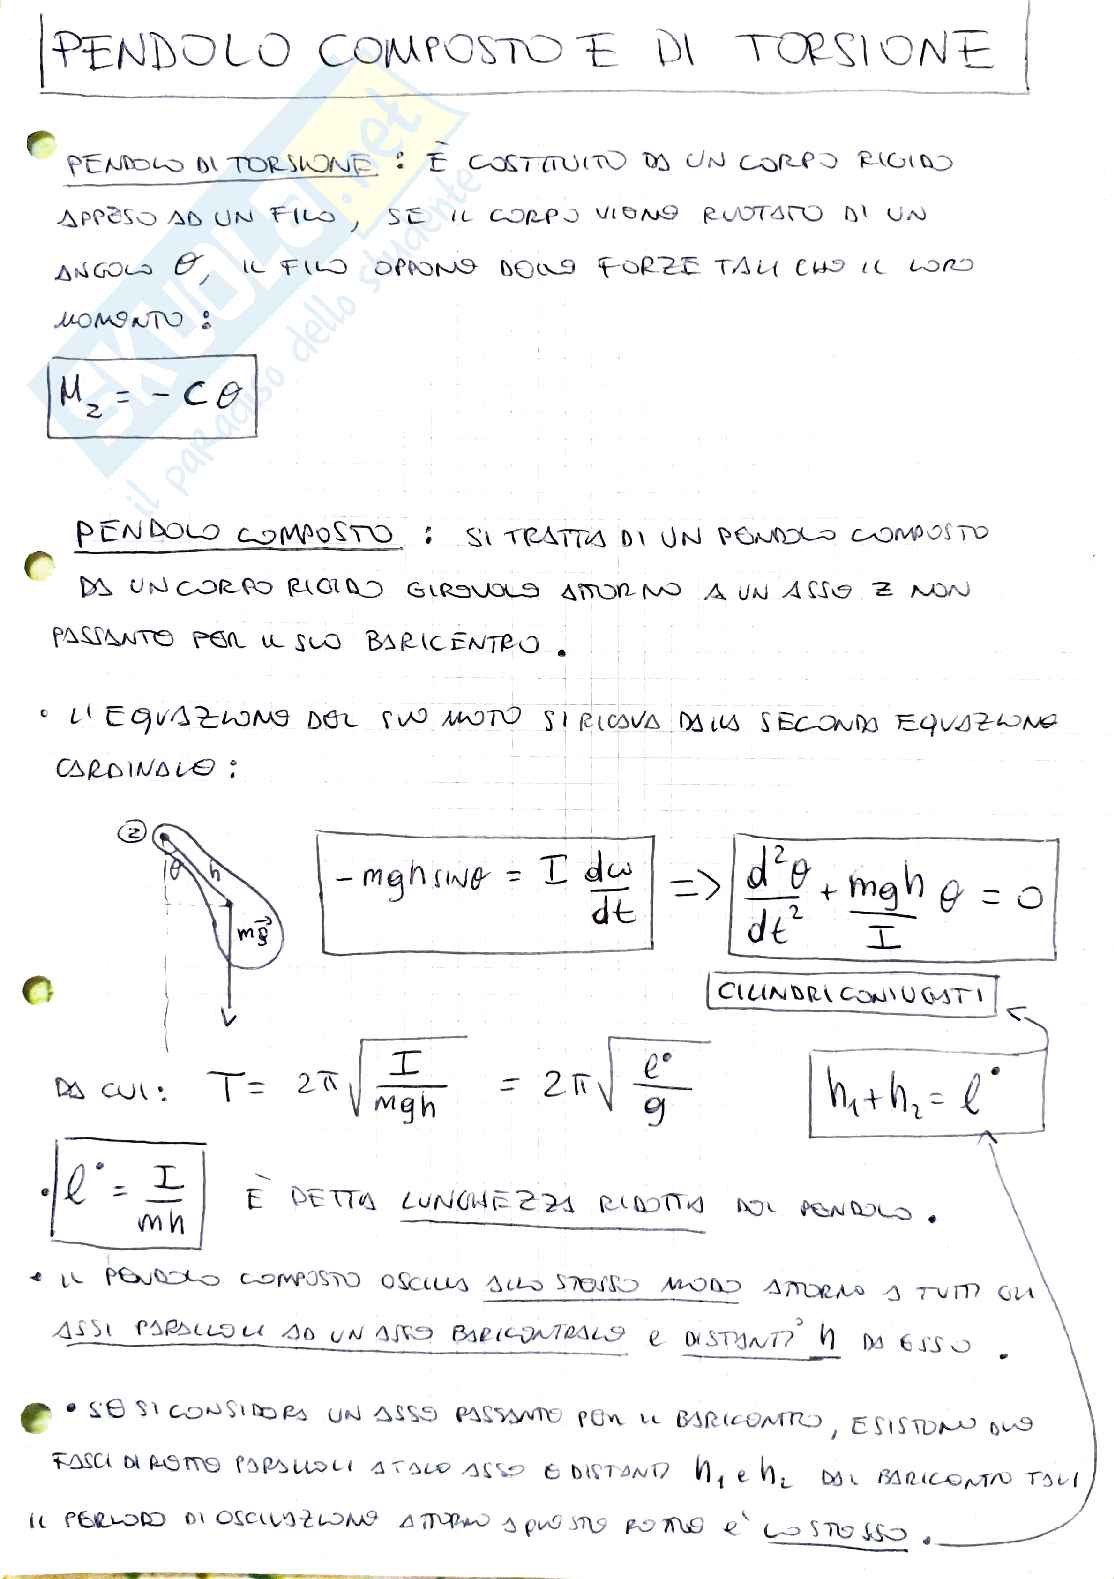 PENDOLO COMPOSTO E DI TORSIONE
PENDOLO DI TORSIONE : È COSTITUITO DA UN CORPO RIGIDO
APPESO AD UN FILO, SE IL CORPO VIENE RUOTATO DI UN
ANGOLO θ, IL FILO OPPONE DELLE FORZE TALI CHE IL LORO
MOMENTO :
M_z = - C θ
PENDOLO COMPOSTO : SI TRATTA DI UN PENDOLO COMPOSTO
DA UN CORPO RIGIDO GIREVOLE ATTORNO A UN ASSE Z NON
PASSANTE PER IL SUO BARICENTRO .
• L'EQUAZIONE DEL SUO MOTO SI RICAVA DALLA SECONDA EQUAZIONE
CARDINALE :
z
θ h
mg⃗
-mgh sinθ = I dω/dt => d²θ/dt² + mgh/I θ = 0
CILINDRI CONIUGATI
DA CUI : T = 2π√(I/mgh) = 2π√(l°/g)
h₁ + h₂ = l°
• l° = I/mh È DETTA LUNGHEZZA RIDOTTA DEL PENDOLO .
• IL PENDOLO COMPOSTO OSCILLA ALLO STESSO MODO ATTORNO A TUTTI GLI
ASSI PARALLELI AD UN ASSE BARICENTRALE E DISTANTI h DA ESSO .
• SE SI CONSIDERA UN ASSE PASSANTE PER IL BARICENTRO, ESISTONO DUE
FASCI DI RETTE PARALLELI A TALE ASSE E DISTANTI h₁ e h₂ DAL BARICENTRO TALI
IL PERIODO DI OSCILLAZIONE ATTORNO A QUESTE RETTE E' LO STESSO .
SKUOLA.net
il paradiso dello studente